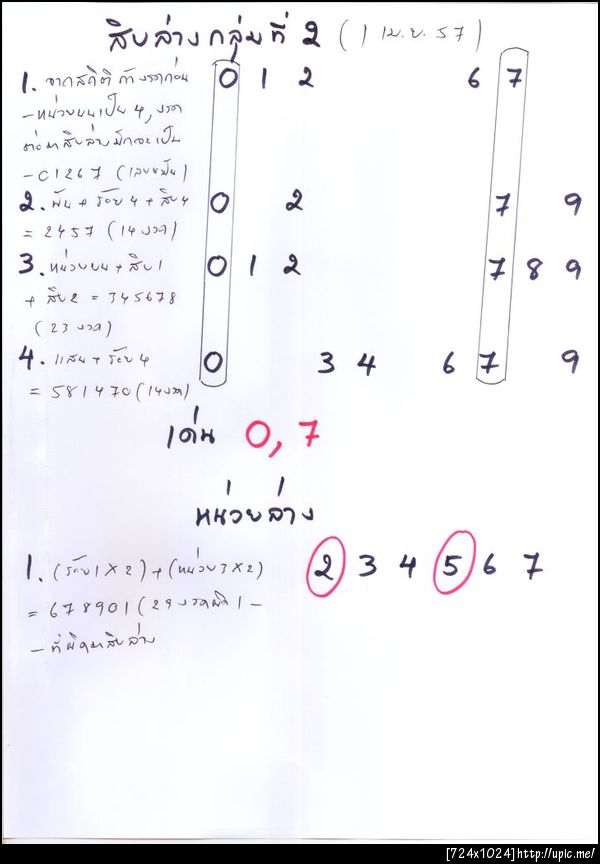 สิบล่างกลุ่มที่ 2 (1 เม.ย. 57)
1. จากสถิติ ถ้างวดก่อน 0 1 2 6 7
- หน่วยบนเป็น 4, งวด
ต่อมาสิบล่างมักจะเป็น
- 01267 (เลขผัน)
2. พัน + ร้อย 4 + สิบ 4 0 2 7 9
= 2457 (14 งวด)
3. หน่วยบน + สิบ 1 0 1 2 7 8 9
+ สิบ 2 = 345678
(23 งวด)
4. แสน + ร้อย 4 0 3 4 6 7 9
= 581470 (14 งวด)
เด่น 0, 7
หน่วยล่าง
1. (ร้อย 1 X 2) + (หน่วย 3 X 2) 2 3 4 5 6 7
= 678901 (29 งวดผิด 1 -
- ที่ผิดมาสิบล่าง
[724x1024]http://upic.me/